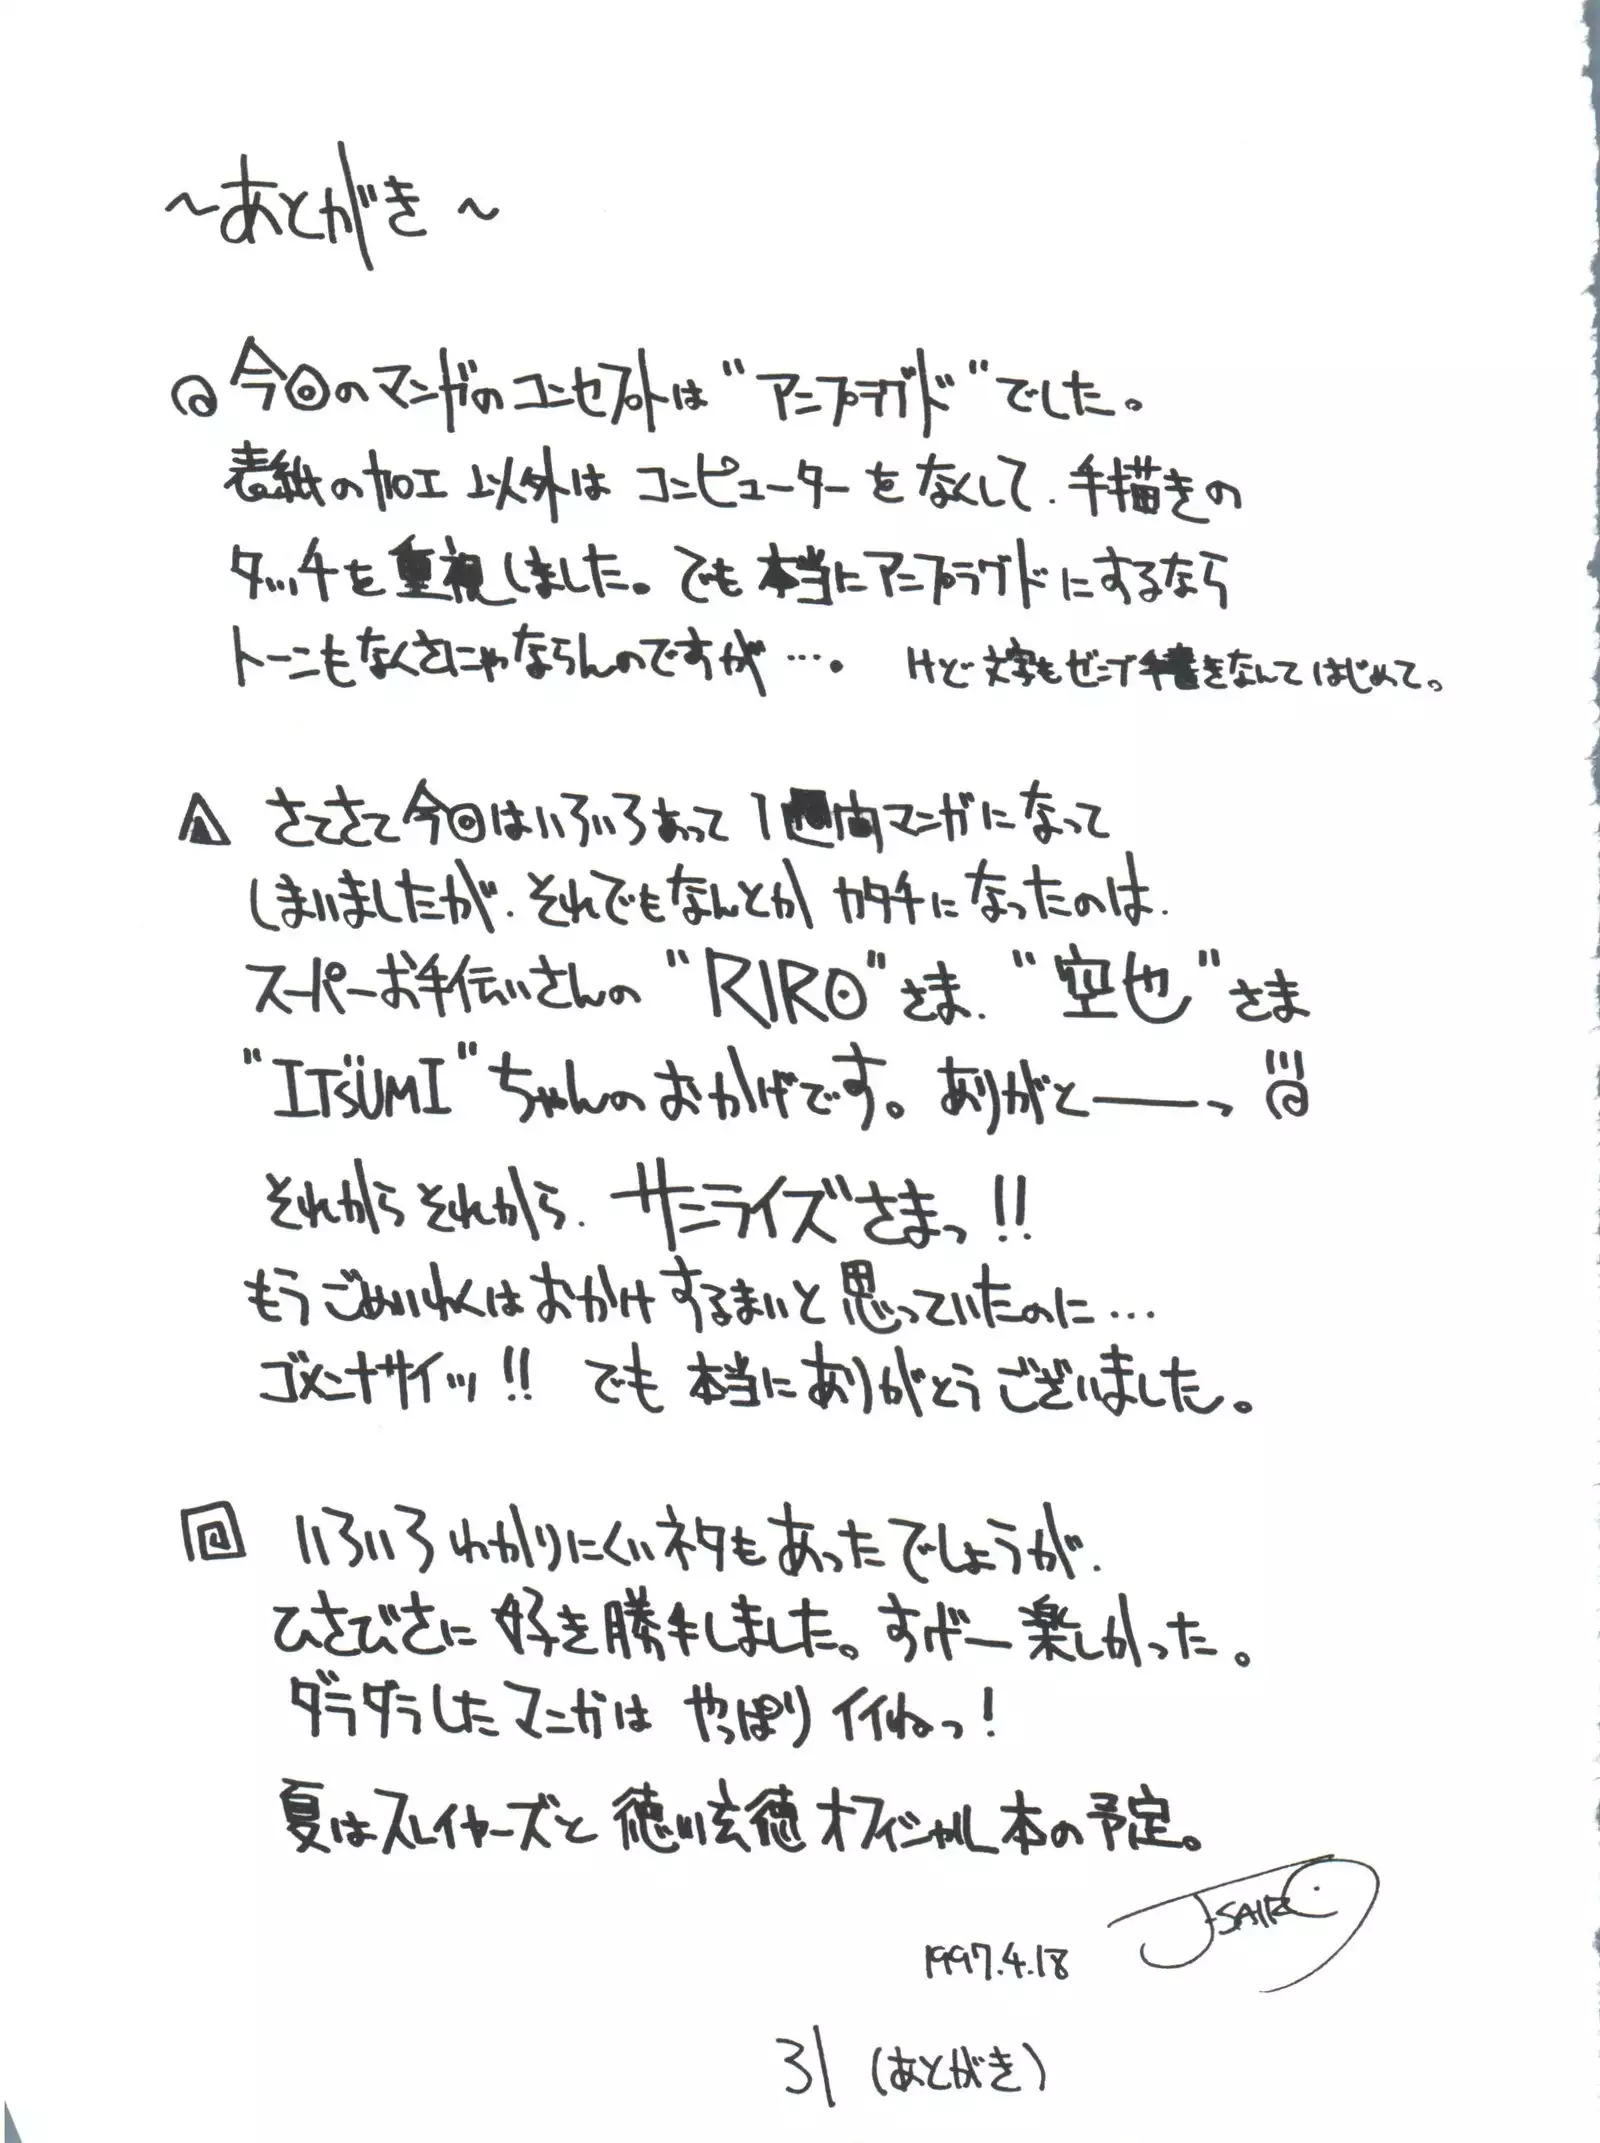 ～あとがき～
今回のマンガのコンセプトは"アンプラグド"でした。
表紙の加工以外はコンピューターをなくして、手描きの
タッチを重視しました。でも本当にアンプラグドにするなら
トーンもなくさにゃならんのですが…。 けど文字もゼンブ手書きなんてはじめて。
さてさて今回はいろいろあって1週間マンガになって
しまいましたが、それでもなんとかカタチになったのは、
スーパーお手伝いさんの"RIRO"さま、"空也"さま
"ITSUMI"ちゃんのおかげです。ありがとーーっ
それからそれから、サンライズさまっ!!
もうごめいわくはおかけするまいと思っていたのに…
ゴメンナサイッ!! でも本当にありがとうございました。
いろいろわかりにくいネタもあったでしょうが、
ひさびさに好き勝手しました。すげー楽しかった。
ダラダラしたマンガはやっぱりイイねっ!
夏はスレイヤーズと徳川玄徳オフィシャル本の予定。
J-SAIRO
1997.4.18
31 (あとがき)